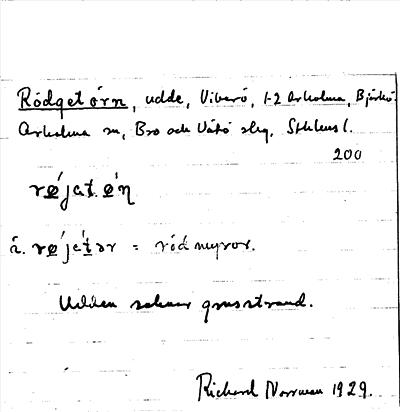 Rödgetörn, udde, Viberö, 1-2 Arholma, Björkö-
Arholma sn, Bro och Vätö slg, Sthlms l.
200
rø´jat.ø´n
å. rø´jetər = rödmyror.
Udden saknar grusstrand.
Richard Norrman 1929.